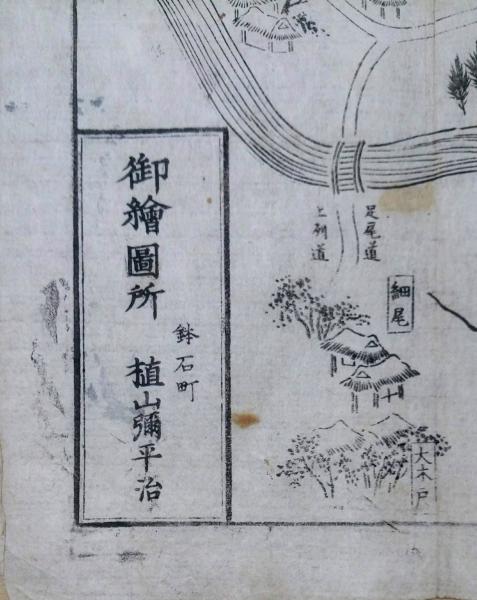 足尾道
上列道
細尾
大木戸
御繪圖所
鉢石町
植山彌平治